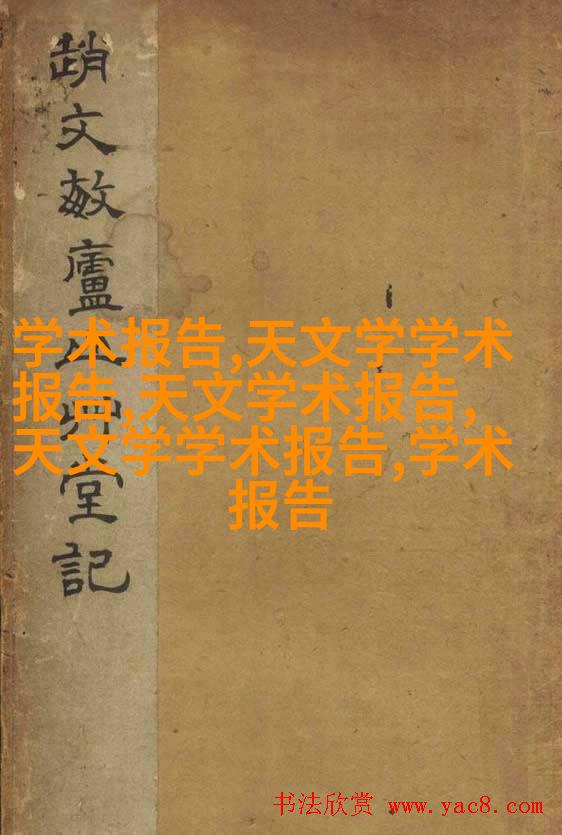 趙文敏廬山艸堂記
学术报告,天文学学术
报告,天文学术报告,
天文学学术报告,学术
报告
书法欣赏 www.yac8.com